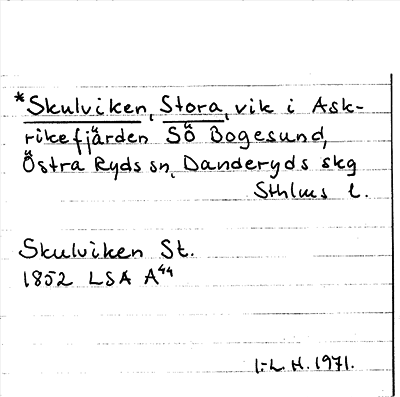 *Skulviken, Stora, vik i Ask-
rikefjärden SÖ Bogesund,
Östra Ryds sn, Danderyds skg
Sthlms l.
Skulviken St.
1852 LSA A44
I-L H. 1971.